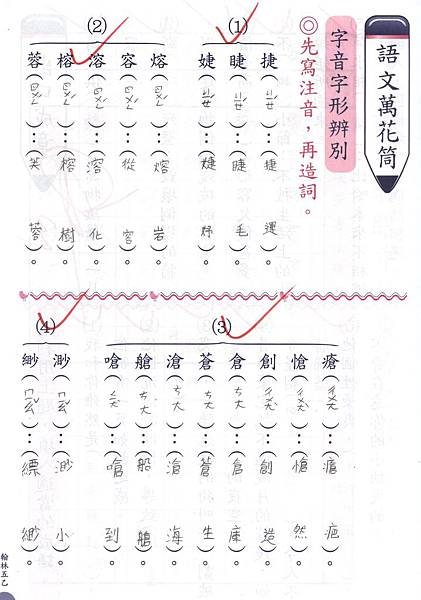 語文萬花筒
字音字形辨別
◎先寫注音，再造詞。
(1)
捷(ㄐㄧㄝˊ)：(捷運)。
睫(ㄐㄧㄝˊ)：(睫毛)。
婕(ㄐㄧㄝˊ)：(婕妤)。
(2)
熔(ㄖㄨㄥˊ)：(熔岩)。
容(ㄖㄨㄥˊ)：(從容)。
溶(ㄖㄨㄥˊ)：(溶化)。
榕(ㄖㄨㄥˊ)：(榕樹)。
蓉(ㄖㄨㄥˊ)：(芙蓉)。
(3)
瘡(ㄔㄨㄤ)：(瘡疤)。
愴(ㄔㄨㄤˋ)：(愴然)。
創(ㄔㄨㄤˋ)：(創造)。
倉(ㄘㄤ)：(倉庫)。
蒼(ㄘㄤ)：(蒼生)。
滄(ㄘㄤ)：(滄海)。
艙(ㄘㄤ)：(船艙)。
嗆(ㄑㄧㄤ)：(嗆到)。
(4)
渺(ㄇㄧㄠˇ)：(渺小)。
緲(ㄇㄧㄠˇ)：(縹緲)。
翰林五乙